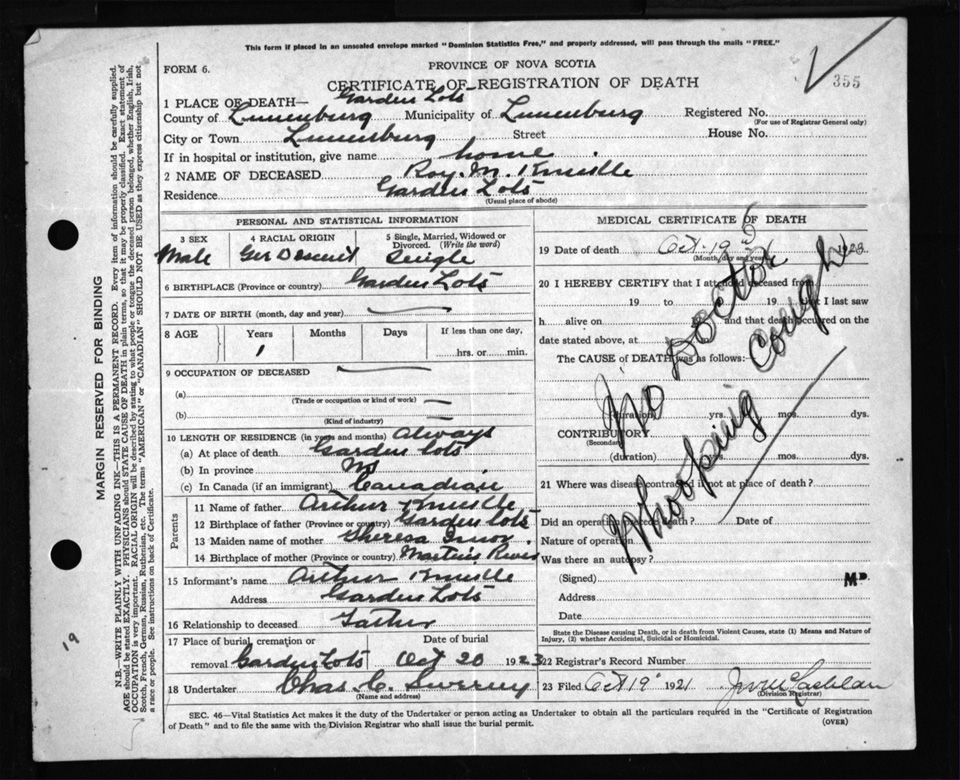 This form if placed in an unsealed envelope marked "Dominion Statistics Free," and properly addressed, will pass through the mails "FREE."
FORM 6.
PROVINCE OF NOVA SCOTIA
355
CERTIFICATE OF REGISTRATION OF DEATH
1 PLACE OF DEATH— Garden Lots
County of Lunenburg Municipality of Lunenburg Registered No.
(For use of Registrar General only)
City or Town Lunenburg Street House No.
If in hospital or institution, give name home
2 NAME OF DECEASED Roy. M. Knickle
Residence Garden Lots
(Usual place of abode)
PERSONAL AND STATISTICAL INFORMATION
3 SEX 4 RACIAL ORIGIN 5 Single, Married, Widowed or Divorced. (Write the word)
Male Ger Descent Single
6 BIRTHPLACE (Province or country) Garden Lots
7 DATE OF BIRTH (month, day and year)
8 AGE Years Months Days If less than one day,
1 hrs. or min.
9 OCCUPATION OF DECEASED
(a)
(Trade or occupation or kind of work)
(b)
(Kind of industry)
10 LENGTH OF RESIDENCE (in years and months) Always
(a) At place of death Garden Lots
(b) In province NS
(c) In Canada (if an immigrant) Canadian
Parents
11 Name of father Arthur Knickle
12 Birthplace of father (Province or country) Garden Lots
13 Maiden name of mother Theresa
14 Birthplace of mother (Province or country) Martins River
15 Informant's name Arthur Knickle
Address Garden Lots
16 Relationship to deceased Father
17 Place of burial, cremation or Date of burial
removal Garden Lots Oct 20 1923
18 Undertaker Chas. C.
(Name and address)
MEDICAL CERTIFICATE OF DEATH
19 Date of death Oct. 19 1923
(Month, day and year)
20 I HEREBY CERTIFY that I attended deceased from
19 to 19 that I last saw
h alive on and that death occurred on the
date stated above, at
The CAUSE of DEATH was as follows:
No Doctor
Whooping Cough
(duration) yrs. mos. dys.
CONTRIBUTORY
(Secondary)
(duration) mos. dys.
21 Where was disease contracted if not at place of death?
Did an operation precede death? Date of
Nature of operation
Was there an autopsy?
(Signed) M.D.
Address
Date
State the Disease causing Death, or in death from Violent Causes, state (1) Means and Nature of
Injury, (2) whether Accidental, Suicidal or Homicidal.
22 Registrar's Record Number
23 Filed Oct 19 1921
(Division Registrar)
SEC. 46—Vital Statistics Act makes it the duty of the Undertaker or person acting as Undertaker to obtain all the particulars required in the "Certificate of Registration
of Death" and to file the same with the Division Registrar who shall issue the burial permit. (OVER)
MARGIN RESERVED FOR BINDING
N.B.—WRITE PLAINLY WITH UNFADING INK—THIS IS A PERMANENT RECORD. Every item of information should be carefully supplied.
AGE should be stated EXACTLY. PHYSICIANS should STATE CAUSE OF DEATH in plain terms, so that it may be properly classified. Exact statement of
OCCUPATION is very important. RACIAL ORIGIN will be described by stating to what people or tongue the deceased person belonged, whether English, Irish,
Scotch, French, German, Russian, Ruthenian, etc. The terms "AMERICAN" or "CANADIAN" SHOULD NOT BE USED as they express citizenship but not
a race or people. See instructions on back of Certificate.
19